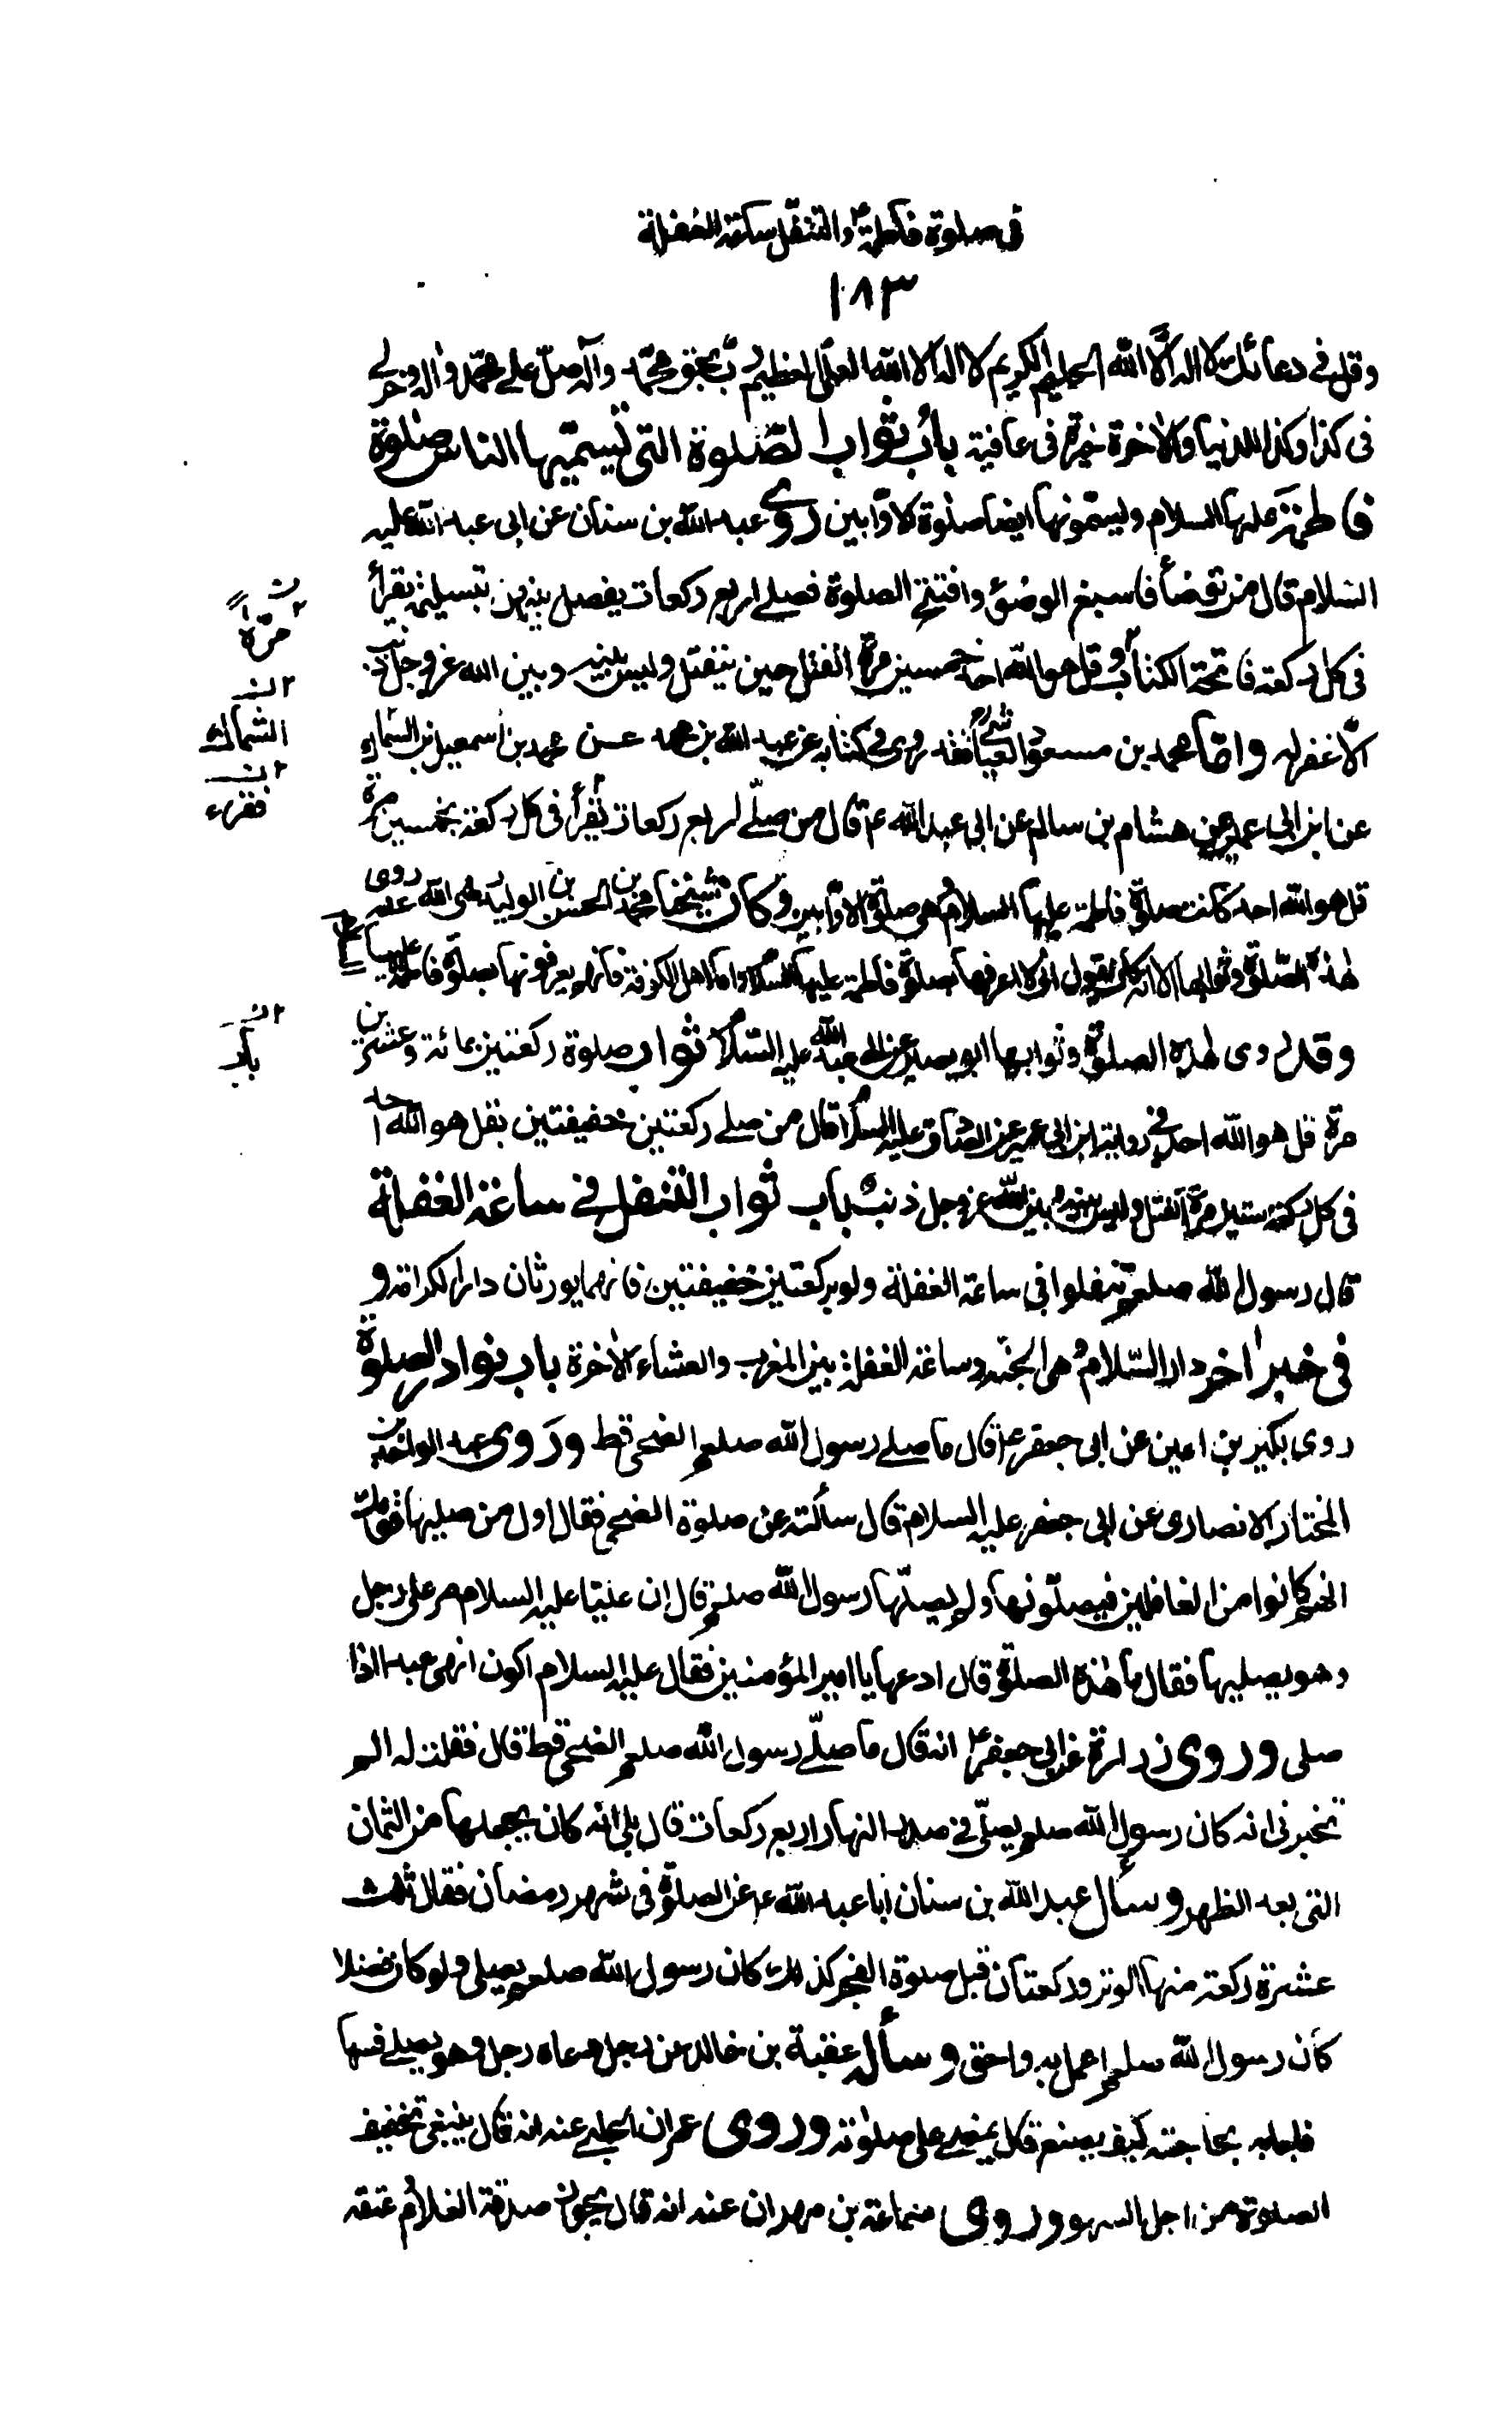 في صلوة فاطمة ع والتنفل ساعة الغفلة
١٨٣
وقل في دعائك لا اله الا الله الحليم الكريم لا اله الا الله العلي العظيم رب بحق محمد وآله صل على محمد واله وخر لي
في كذا وكذا للدنيا والاخرة خيرة في عافية باب ثواب الصلوة التي تسميها الناس صلوة
فاطمة عليها السلام ويسمونها ايضا صلوة الاوابين روى عبد الله بن سنان عن ابي عبد الله عليه
السلام قال من توضأ فاسبغ الوضوء وافتتح الصلوة فصلى اربع ركعات يفصل بينهن بتسليمة يقرأ
في كل ركعة فاتحة الكتاب وقل هو الله احد خمسين مرة انفتل حين ينفتل وليس بينه وبين الله عز وجل ذنب
الا غفر له واما محمد بن مسعود العياشي ره فقد روى في كتابه عن عبد الله بن محمد عن محمد بن اسمعيل بن السماك
عن ابن ابي عمير عن هشام بن سالم عن ابي عبد الله ع قال من صلى اربع ركعات يقرأ في كل ركعة بخمسين مرة
قل هو الله احد كانت صلوة فاطمة عليها السلام وهي صلوة الاوابين وكان شيخنا محمد بن الحسن بن الوليد رضى الله عنه روى
هذه الصلوة وثوابها الا انه كان يقول اني لا اعرفها صلوة فاطمة عليها السلام واما اهل الكوفة فانهم يعرفونها بصلوة فاطمة عليها
وقد روى هذه الصلوة وثوابها ابو بصير عن ابي عبد الله عليه السلام ثواب صلوة ركعتين بمائة وعشرين
مرة قل هو الله احد في رواية ابن ابي عمير عن الصادق عليه السلام قال من صلى ركعتين خفيفتين بقل هو الله احد
في كل ركعة ستين مرة انفتل وليس بينه وبين الله عز وجل ذنب باب ثواب التنفل في ساعة الغفلة
قال رسول الله صلعم تنفلوا في ساعة الغفلة ولو بركعتين خفيفتين فانهما يورثان دار الكرامة و
في خبر اخر دار السلام وهي الجنة وساعة الغفلة بين المغرب والعشاء الاخرة باب نوادر الصلوة
روى بكير بن اعين عن ابي جعفر ع قال ما صلى رسول الله صلعم الضحى قط وروى عبد الواحد بن
المختار الانصاري عن ابي جعفر عليه السلام قال سألته عن صلوة الضحى فقال اول من صليها قومك
انهم كانوا من الغافلين فيصلونها ولم يصلها رسول الله صلعم وقال ان عليا عليه السلام مر على رجل
وهو يصليها فقال ما هذه الصلوة قال ادعها يا امير المؤمنين فقال عليه السلام اكون انهى عبدا اذا
صلى وروى زرارة عن ابي جعفر ع انه قال ما صلى رسول الله صلعم الضحى قط قال فقلت له الم
تخبرني انه كان رسول الله صلعم يصلى في صدر النهار اربع ركعات قال بلى انه كان يجعلها من الثمان
التي بعد الظهر وسأل عبد الله بن سنان ابا عبد الله ع عن الصلوة في شهر رمضان فقال ثلث
عشرة ركعة منها الوتر وركعتان قبل صلوة الفجر كذلك كان رسول الله صلعم يصلى ولو كان فضلا
كان رسول الله صلعم اعمل به واحق وسأل عقبة بن خالد عن رجل دعاه رجل وهو يصلى فسها
فاجابه بحاجته كيف يصنع قال يمضى على صلوته وروى عمران الحلبي عنه انه قال ينبغي تخفيف
الصلوة من اجل السهو وروى سماعة بن مهران عنه انه قال يجوز صدقة الغلام وعتقه
مرة
السماك
فقرء
باب